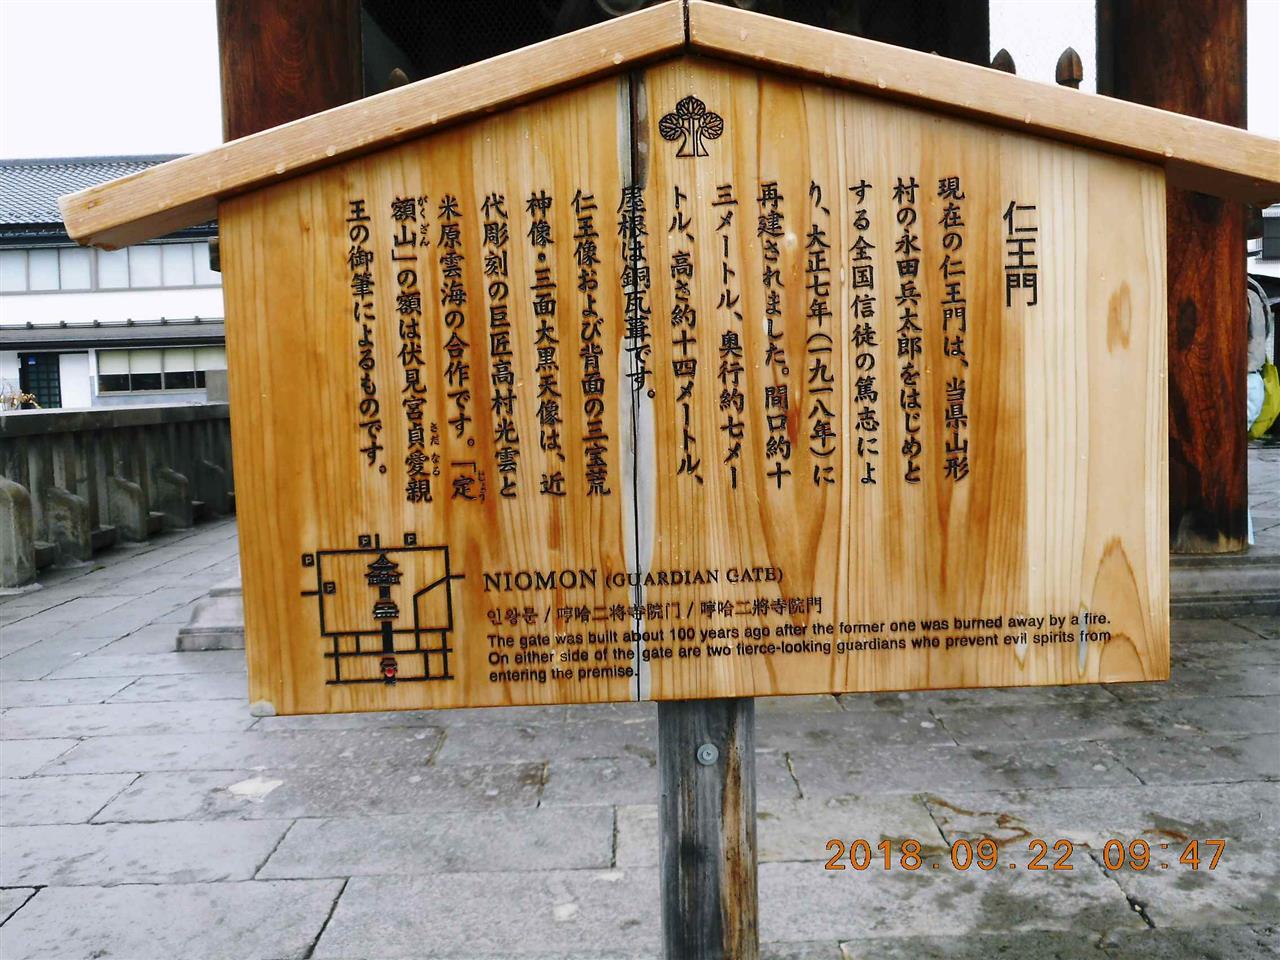 仁王門
現在の仁王門は、当県山形
村の永田兵太郎をはじめと
する全国信徒の篤志によ
り、大正七年(一九一八年)に
再建されました。間口約十
三メートル、奥行約七メー
トル、高さ約十四メートル、
屋根は銅瓦葺です。
仁王像および背面の三宝荒
神像・三面大黒天像は、近
代彫刻の巨匠高村光雲と
米原雲海の合作です。「定
じょう
額山」の額は伏見宮貞愛親
がくざん
さだ なる
王の御筆によるものです。
P
P
P
P
NIOMON (GUARDIAN GATE)
인왕문 / 哼哈二将寺院门 / 哼哈二將寺院門
The gate was built about 100 years ago after the former one was burned away by a fire.
On either side of the gate are two fierce-looking guardians who prevent evil spirits from
entering the premise.
2018.09.22 09:47